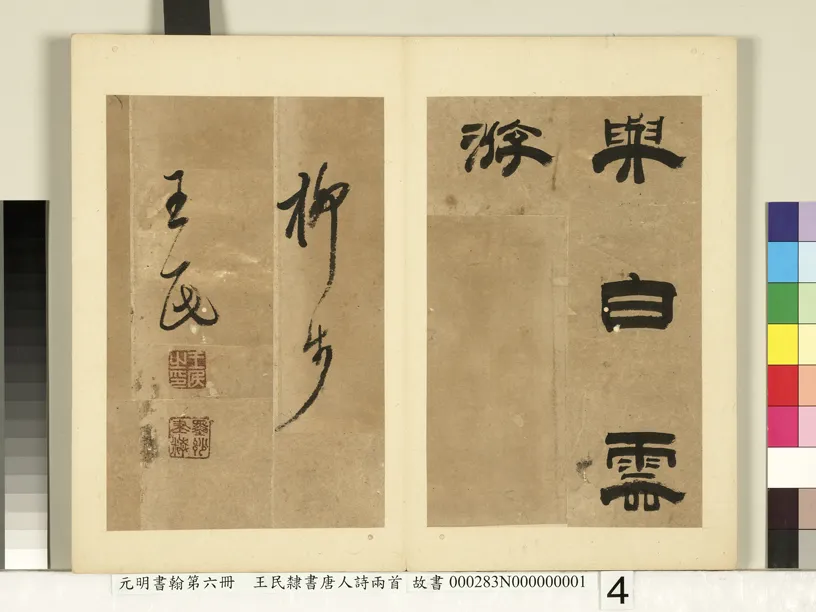 與白雲
游
柳步
王民
王民之印
元明書翰第六冊 王民隸書唐人詩兩首 故書 000283N000000001
4